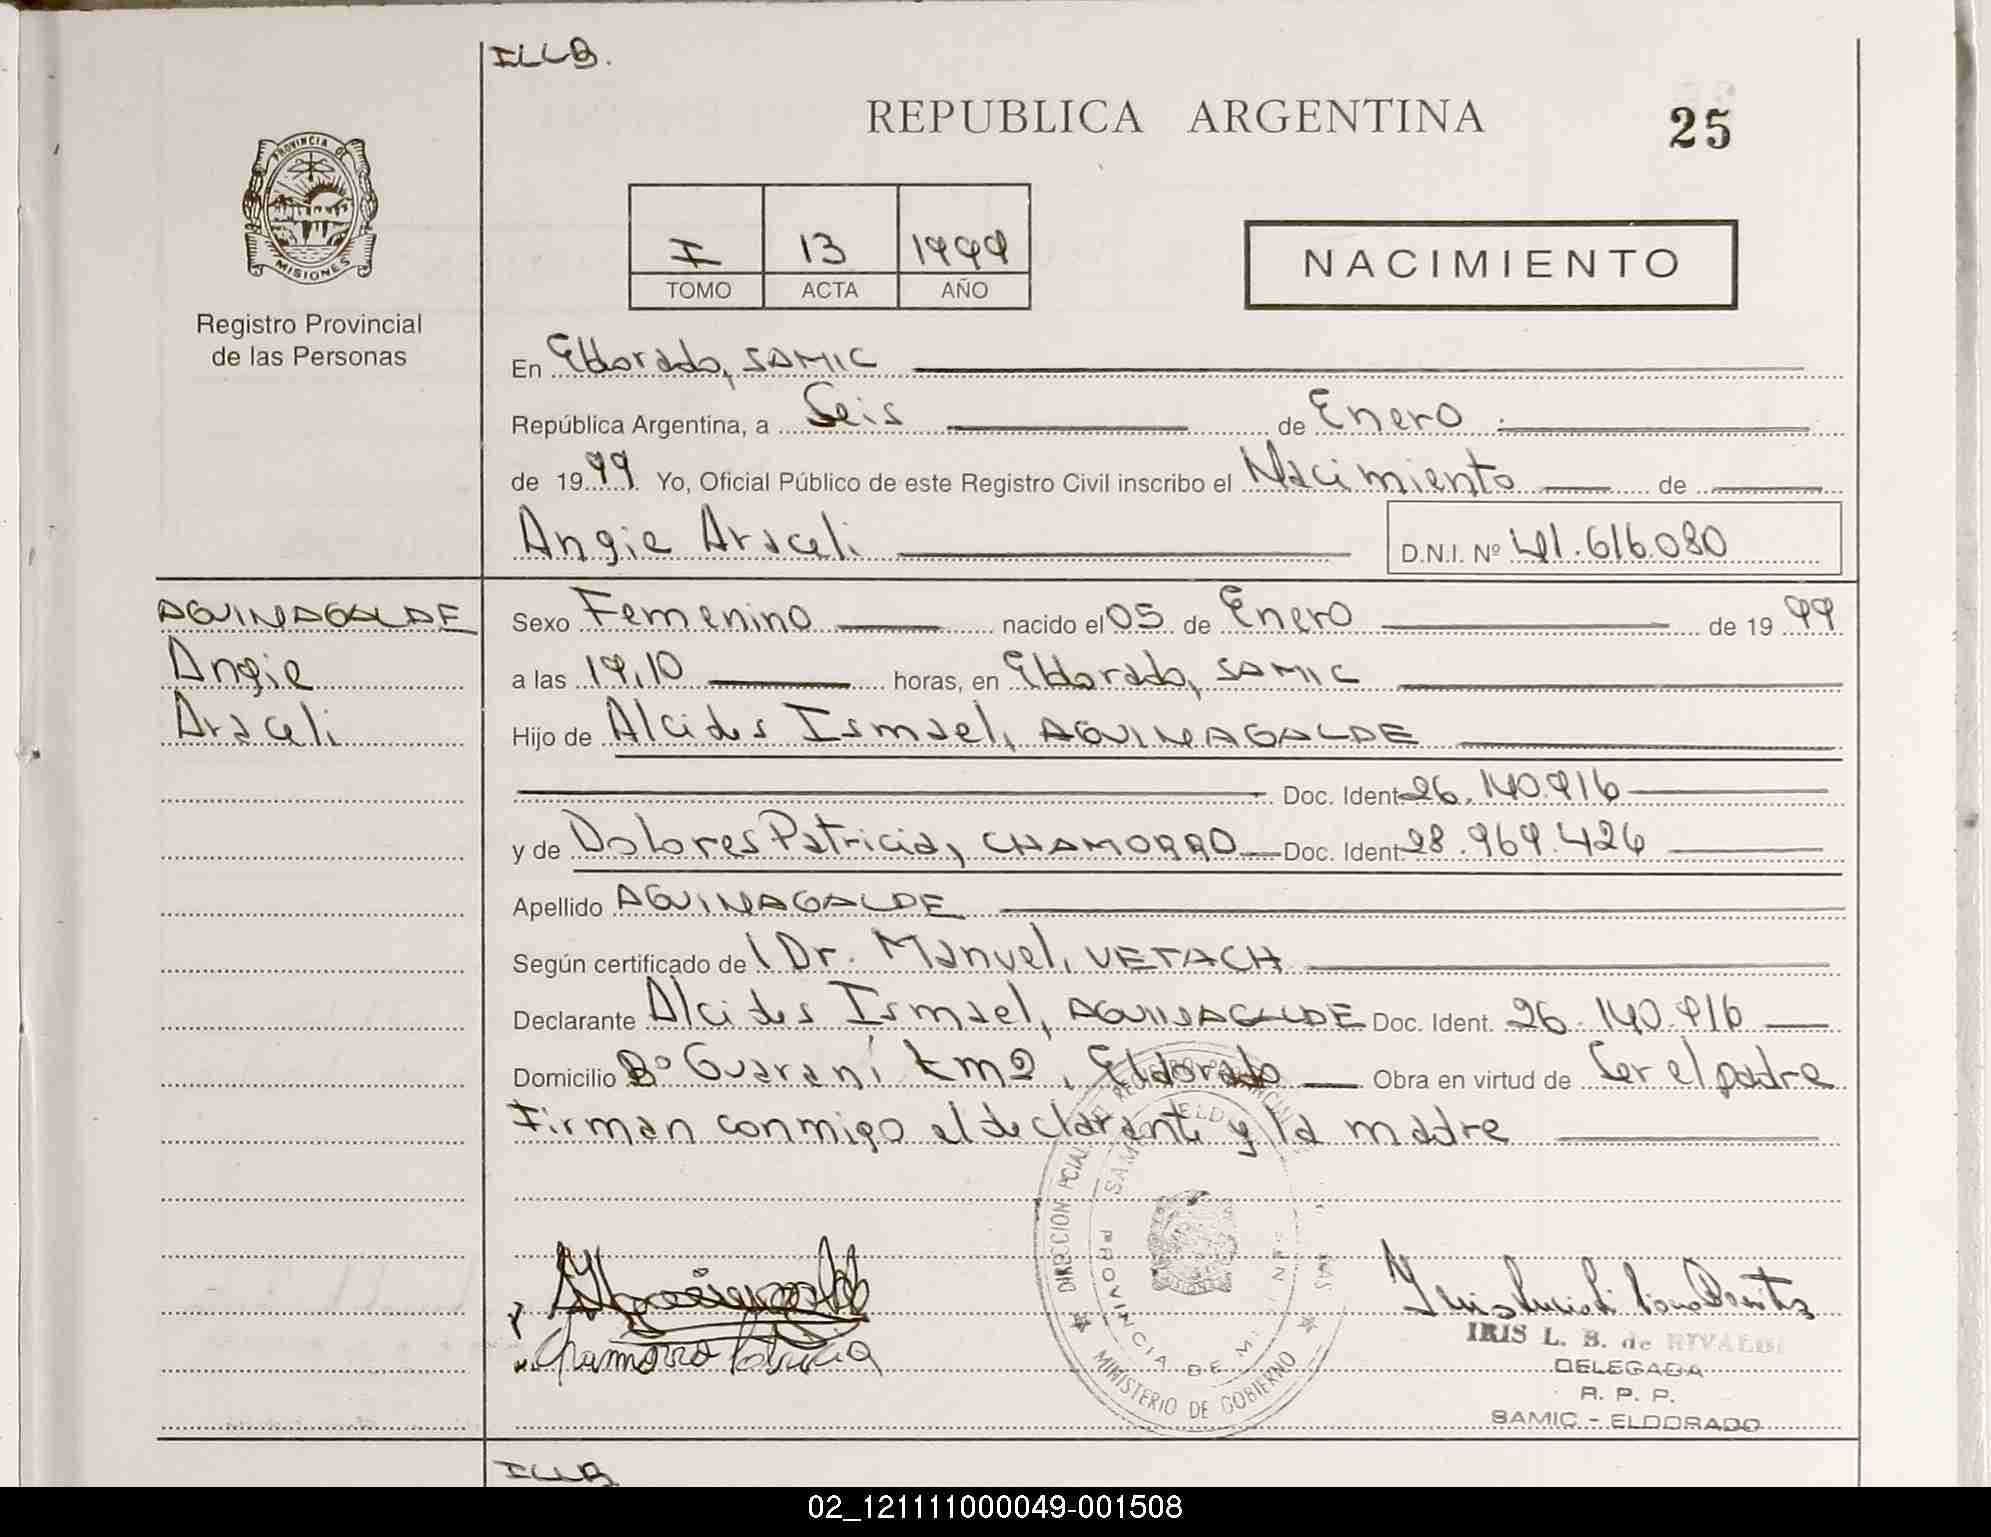 ILLB.
REPUBLICA ARGENTINA
25
PROVINCIA DE
MISIONES
Registro Provincial
de las Personas
I 13 1999
TOMO ACTA AÑO
NACIMIENTO
En Eldorado, SAMIC
República Argentina, a Seis de Enero
de 1999 Yo, Oficial Público de este Registro Civil inscribo el Nacimiento de
Angie Araceli D.N.I. Nº 41.616.080
AGUINAGALDE
Angie
Araceli
Sexo Femenino nacido el 05 de Enero de 1999
a las 19,10 horas, en Eldorado, SAMIC
Hijo de Alcides Ismael, AGUINAGALDE
Doc. Ident 26.140.916
y de Dolores Patricia, CHAMORRO Doc. Ident 28.969.426
Apellido AGUINAGALDE
Según certificado del Dr. Manuel, VETACH
Declarante Alcides Ismael, AGUINAGALDE Doc. Ident. 26.140.916
Domicilio Bº Guaraní km2, Eldorado Obra en virtud de Ser el padre
Firman conmigo el declarante y la madre
DIRECCION PCIAL
PROVINCIA DE
MINISTERIO DE GOBIERNO
Chamorro Patricia
IRIS L. B. de RIVALDI
DELEGADA
R. P. P.
SAMIC - ELDORADO
ILLB
02_121111000049-001508